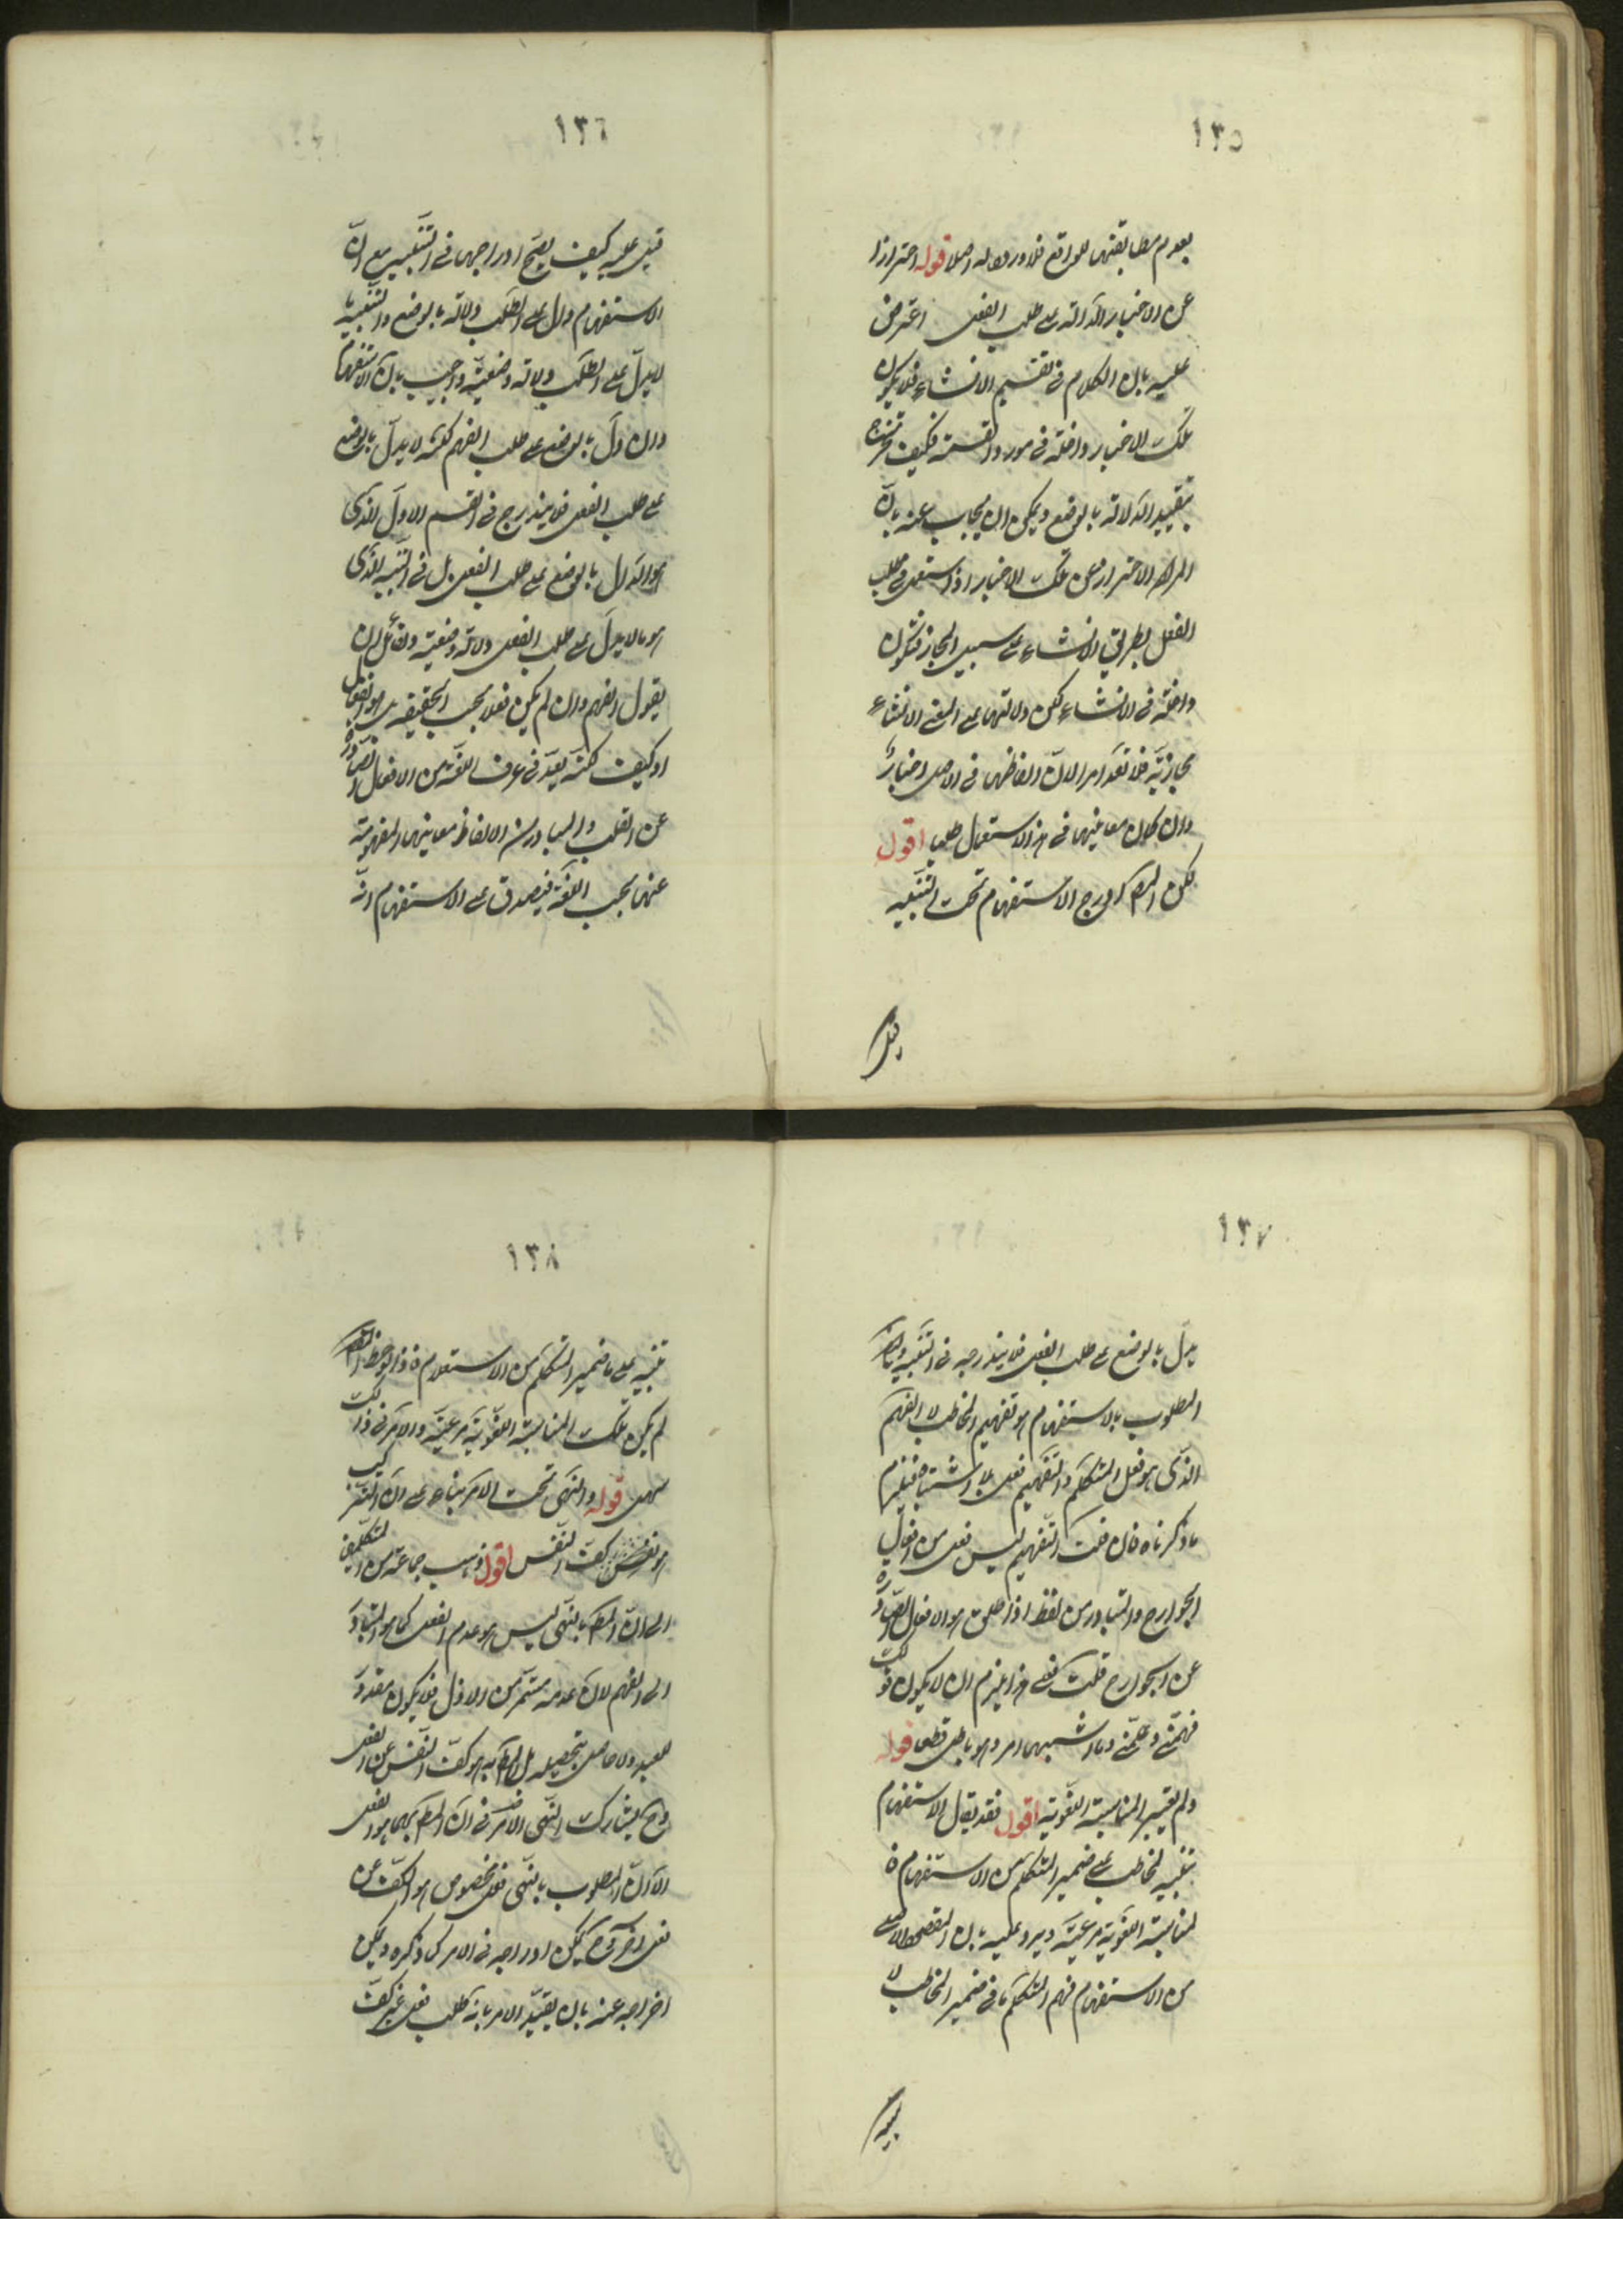 ١٣٥
بعدم مطابقتها للواقع فلا ورود له اصلا قوله احترازا
عن الاخبار الدالة على طلب الفعل اعترض
عليه بان الكلام فى تقسيم الانشاء فلا يكون
تلك الاخبار داخلة فى مورد القسمة فكيف يخرج
بتقييد الدلالة بالوضع ويمكن ان يجاب عنه بان
المراد الاحتراز عن تلك الاخبار اذا استعمل فى طلب
الفعل بطريق الانشاء على سبيل المجاز فتكون
داخلة فى الانشاء لكن دلالتها على المعنى الانشاء
مجازية فلا تعد امرا لان الفاظها فى الاصل اخبار
وان كان معانيها فى هذا الاستعمال طلبا اقول
لكن المص ادرج الاستفهام تحت التنبيه
قيل
١٣٦
قيل عليه كيف يصح ادراجها فى التنبيه مع ان
الاستفهام دال على الطلب دلالة بالوضع والتنبيه ما
لا يدل على الطلب دلالة وضعية واجيب بان الاستفهام
وان دل بالوضع على طلب الفهم لكنه لا يدل بالوضع
على طلب الفعل فلا يندرج فى القسم الاول الذى
هو الدال بالوضع على طلب الفعل بل فى التنبيه الذى
هو ما لا يدل على طلب الفعل دلالة وضعية ولقائل ان
يقول الفهم وان لم يكن فعلا بحسب الحقيقة بل هو انفعال
او كيف لكنه يعد فى عرف اللغة من الافعال الصادرة
عن القلب والمتبادر من الالفاظ معانيها المفهومة
عنها بحسب اللغة فيصدق على الاستفهام انه
١٣٧
يدل بالوضع على طلب الفعل فلا يندرج فى التنبيه وايضا
المطلوب بالاستفهام هو تفهيم المخاطب لا الفهم
الذى هو فعل المتكلم والتفهيم فعل بلا اشتباه فيلزم
ما ذكرناه فان قلت التفهيم ليس فعلا من افعال
الجوارح والمتبادر من لفظ اذا اطلق هو الافعال الصادرة
عن الجوارح قلت فعلى هذا يلزم ان لا يكون قولك
فهمنى وعلمنى وما اشبههما امرا وهو باطل قطعا قوله
ولم يعتبر المناسبة اللغوية اقول فقد يقال الاستفهام
تنبيه المخاطب على ضمير المتكلم من الاستفهام فا
لمناسبة اللغوية مرعية ويرد عليه بان المقصود الاصلى
من الاستفهام فهم المتكلم ما فى ضمير المخاطب لا
تنبيه
١٣٨
تنبيه على ما ضمير المتكلم من الاستعلام فاذا لوحظ المقصود
لم يكن تلك المناسبة اللغوية مرعية والامر فى ذلك
سهل قوله والنهى تحت الامر بناء على ان الترك
هو كف النفس اقول ذهب جماعة من المتكلمين
الى ان المط بالنهى ليس هو عدم الفعل كما هو المتبادر
الى الفهم لان عدمه مستمر من الازل فلا يكون مقدورا
للعبد ولا حاصل بتحصيله بل المط به هو كف النفس عن الفعل
وح يشارك النهى الامر فى ان المط بهما هو الفعل
الا ان المطلوب بالنهى فعل مخصوص هو الكف عن
فعل آخر وح يمكن ادراجه فى الامر كما ذكره ويمكن
اخراجه عنه بان يقيد الامر بانه طلب فعل غير كف